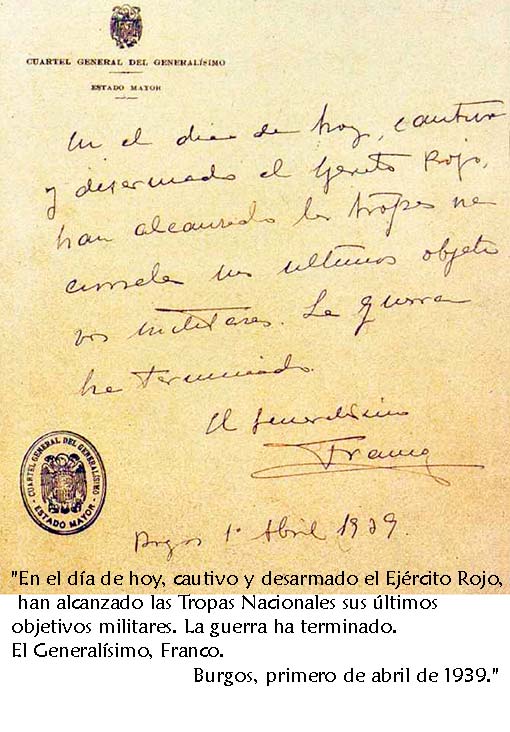 CUARTEL GENERAL DEL GENERALÍSIMO
ESTADO MAYOR
En el día de hoy, cautivo
y desarmado el Ejército Rojo,
han alcanzado las tropas na
cionales sus ultimos objeti
vos militares. La guerra
ha terminado.
El Generalísimo
Franco
Burgos 1º Abril 1939
CUARTEL GENERAL DEL GENERALISIMO
ESTADO MAYOR
"En el día de hoy, cautivo y desarmado el Ejército Rojo,
han alcanzado las Tropas Nacionales sus últimos
objetivos militares. La guerra ha terminado.
El Generalísimo, Franco.
Burgos, primero de abril de 1939."